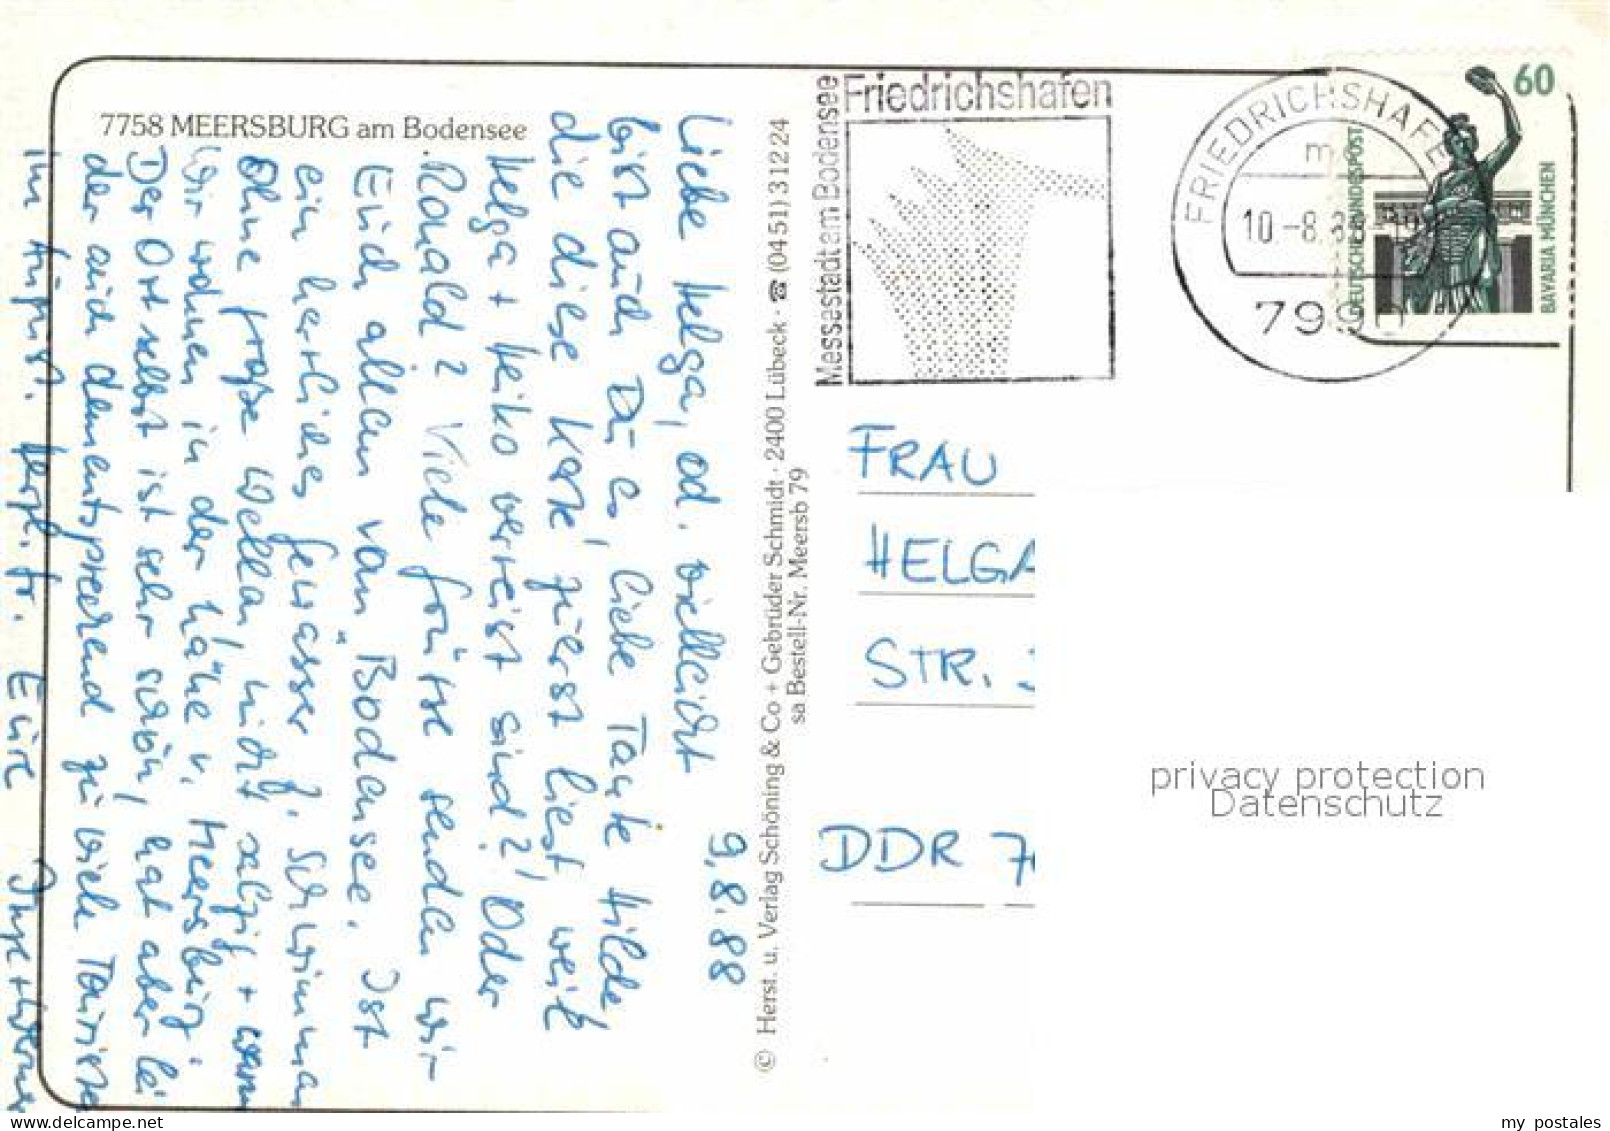 7758 MEERSBURG am Bodensee
9.8.88
Liebe Helga, od. vielleicht
bist auch Du es, liebe Tante Hilde,
die diese Karte zuerst liest, weil
Helga + Heiko verreist sind? Oder
Ronald? Viele Grüße senden wir
Euch allen vom Bodensee. Ist
ein herrliches Gewässer z. Schwimmen
Ohne große Wellen, nicht salzig + warm
Wir wohnen in der Nähe v. Meersburg.
Der Ort selbst ist sehr schön, hat aber lei
der auch dementsprechend zu viele Touristen
im August. Herzl. Gr. Eure Inge + Werner
© Herst. u. Verlag Schöning & Co + Gebrüder Schmidt · 2400 Lübeck · ☎ (0451) 31224
sa Bestell-Nr. Meersb 79
Messestadt am Bodensee
Friedrichshafen
FRIEDRICHSHAFEN
10.-8.8
7990
60
DEUTSCHE BUNDESPOST
BAVARIA MÜNCHEN
FRAU
HELGA
STR.
DDR 7
privacy protection
Datenschutz
my postales